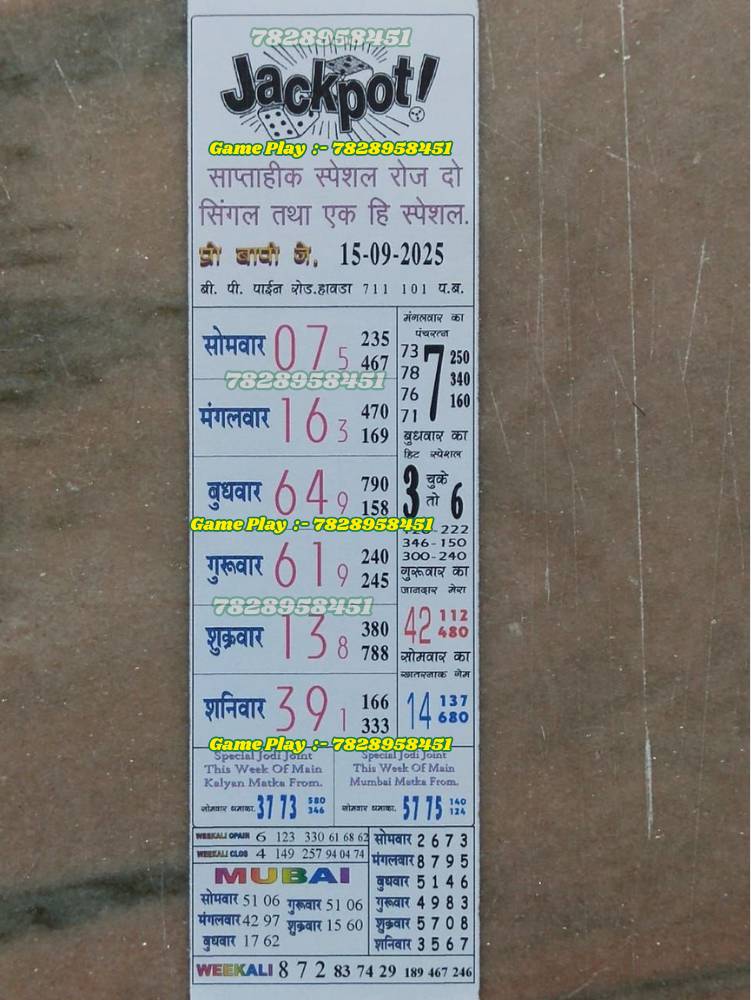 7828958451
Jackpot!
Game Play :- 7828958451
साप्ताहीक स्पेशल रोज दो
सिंगल तथा एक हि स्पेशल.
15-09-2025
बी. पी. पाईन रोड.हावडा 711 101 प.ब.
सोमवार 07 5 235 467
7828958451
मंगलवार 16 3 470 169
बुधवार 64 9 790 158
Game Play :- 7828958451
गुरूवार 61 9 240 245
7828958451
शुक्रवार 13 8 380 788
शनिवार 39 1 166 333
मंगलवार का
पंचरत्न
73 78 76 71 7 250 340 160
बुधवार का
हिट स्पेशल
3 चुके तो 6
346-150
300-240
गुरूवार का
जानदार मेरा
42 112 480
सोमवार का
खतरनाक गेम
14 137 680
Game Play :- 7828958451
Special Jodi Joint
This Week Of Main
Kalyan Matka From.
सोमवार धमाका. 37 73 580 346
Special Jodi Joint
This Week Of Main
Mumbai Matka From.
सोमवार धमाका. 57 75 140 124
WEEKALI OPAIN 6 123 330 61 68 62
WEEKALI CLOS 4 149 257 94 04 74
MUBAI
सोमवार 51 06 गुरूवार 51 06
मंगलवार 42 97 शुक्रवार 15 60
बुधवार 17 62
सोमवार 2 6 7 3
मंगलवार 8 7 9 5
बुधवार 5 1 4 6
गुरूवार 4 9 8 3
शुक्रवार 5 7 0 8
शनिवार 3 5 6 7
WEEKALI 8 7 2 83 74 29 189 467 246